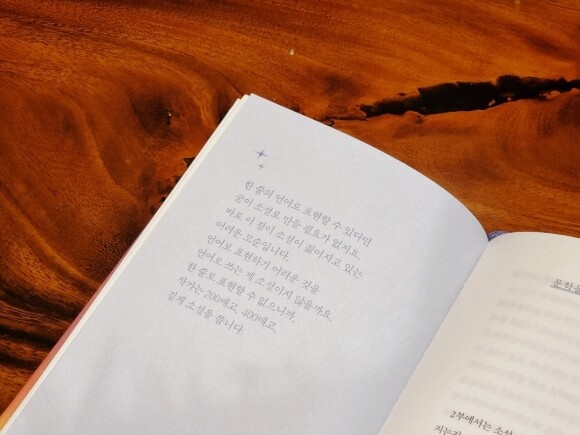 한 줄의 언어로 표현할 수 있다면
굳이 소설로 만들 필요가 없지요.
바로 이 점이 소설이 짊어지고 있는
어려운 모순입니다.
언어로 표현하기 어려운 것을
언어로 쓰는 게 소설이지 않을까요.
한 줄로 표현할 수 없으니까,
작가는 200매고, 400매고,
길게 소설을 씁니다.
문학을
2부에서는 소설